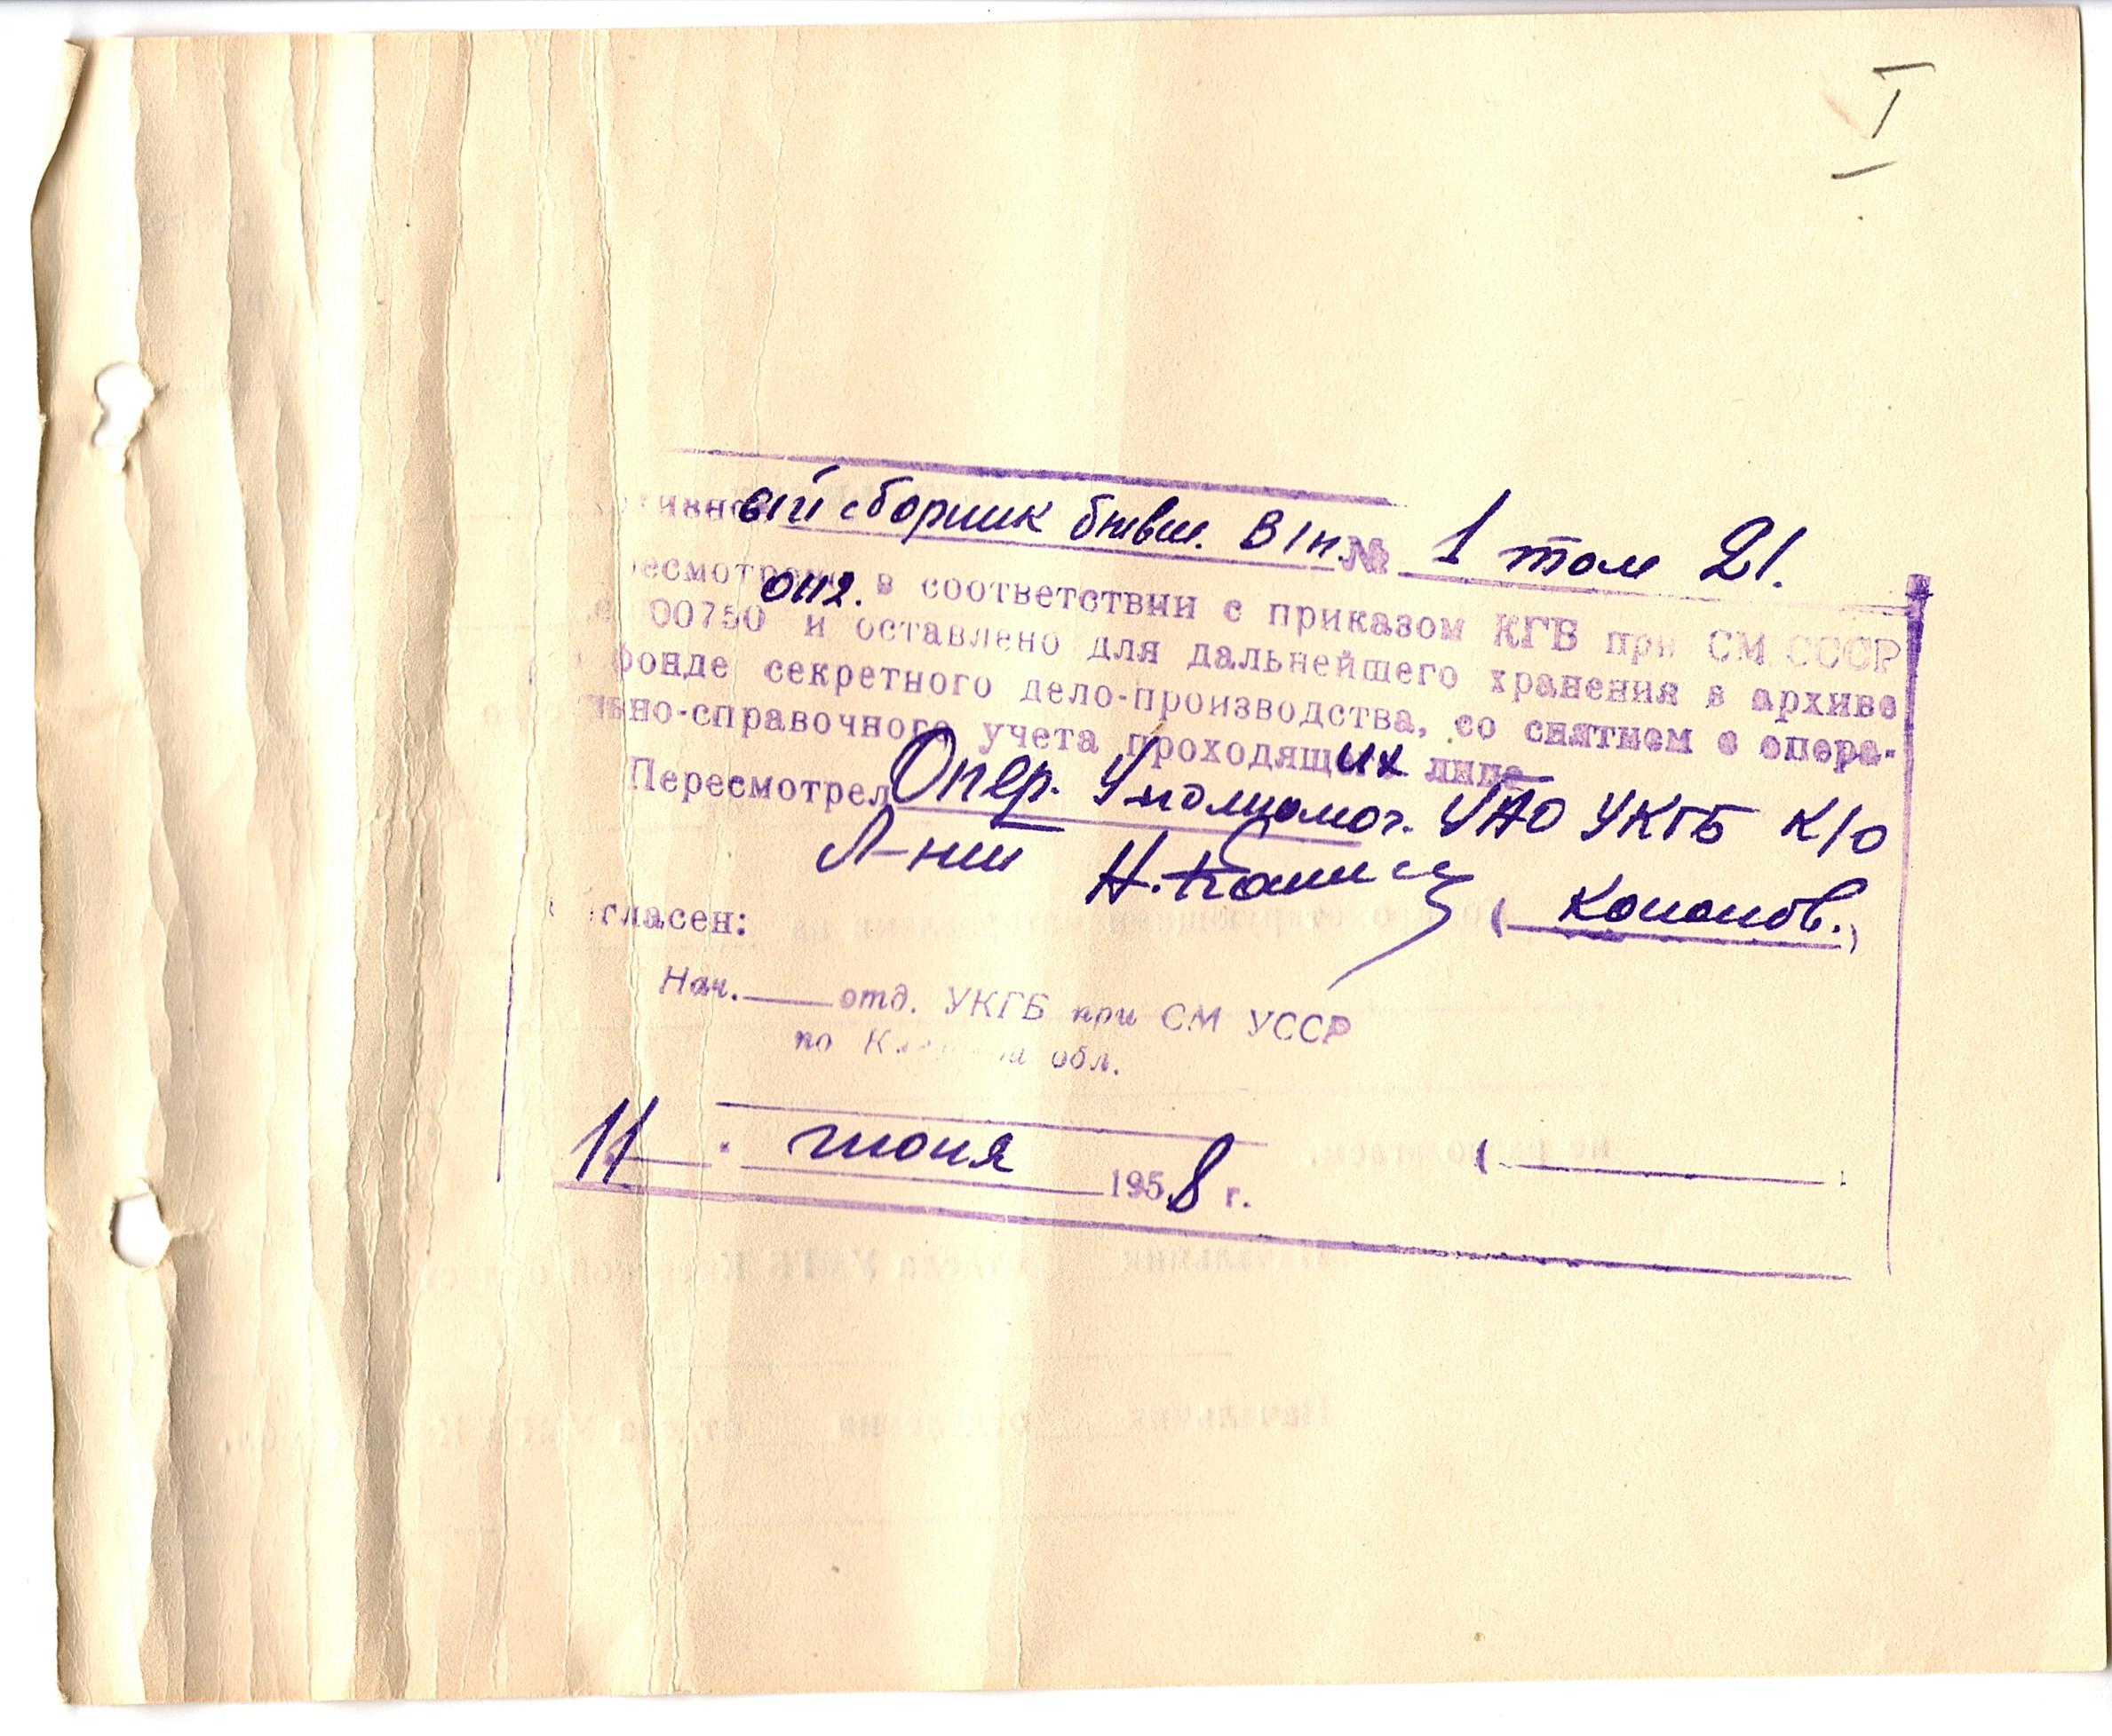 I
ивно ый сборник бывш. В/п. № 1 том 21.
есмотрено в соответствии с приказом КГБ при СМ СССР
00750 и оставлено для дальнейшего хранения в архиве
фонде секретного дело-производства, со снятием с опера-
вно-справочного учета проходящих лиц
Пересмотрел Опер. Уполномоч. УАО УКГБ К/О
Л-нт Н. ( Кононов. )
гласен:
Нач. отд. УКГБ при СМ УССР
по обл.
11 июня 1958 г. ( )